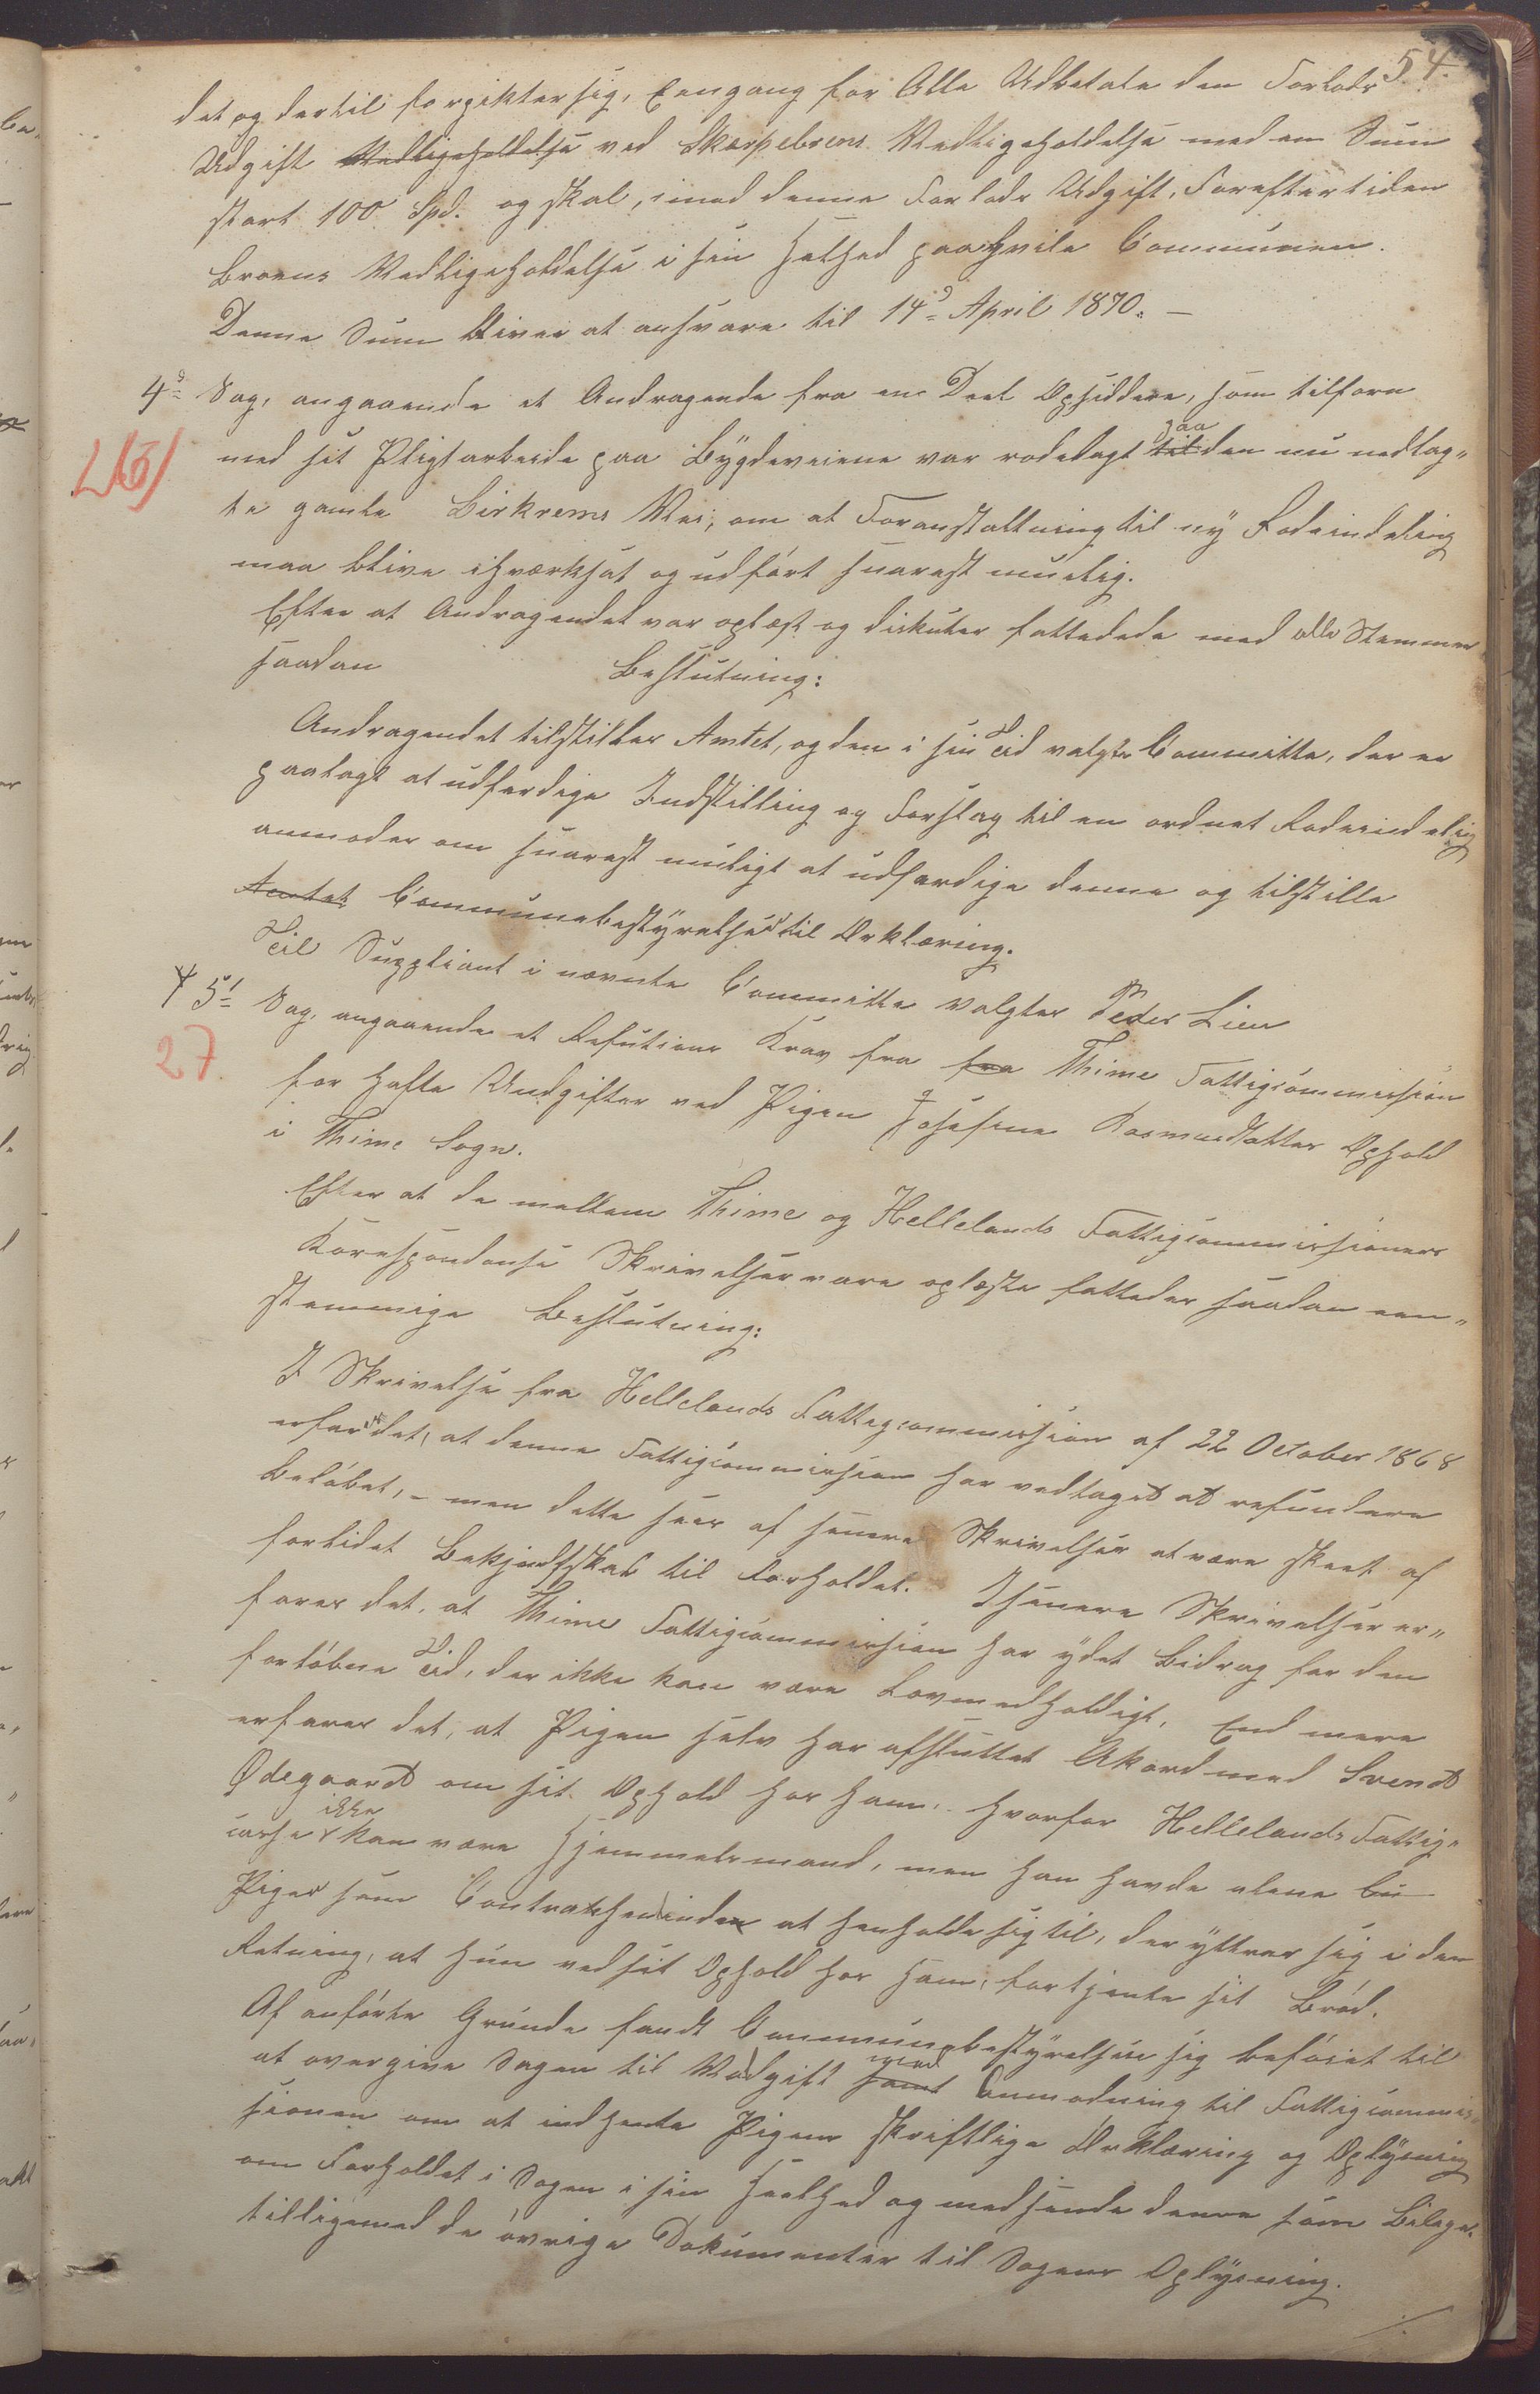 54.
det og dertil forpikter sig, Eengang for Alle Udbetale den Forlods
Udgift Vedligeholdelse ved Skarpebroens Vedligeholdelse med en Sum
stort 100 Spd. og skal, imod denne Forlods Udgift, For eftertiden
Broens Vedligeholdelse i sin Helhed paahvile Communen.
Denne Sum bliver at ansvare til 14d April 1870. —
4d Sag, angaaende et Andragende fra en Deel Opsiddere, som tilforn
med sit Pligtarbeide paa Bygdeveiene var rodelagt til paa den nu nedlag-
te gamle Birkrems Vei, om at Foranstaltning til ny Rodeindeling
maa blive ihværksat og udført snarest muelig.
Efter at Andragendet var oplæst og diskuter fattedede med alle Stemmer
saadan Beslutning:
Andragendet tilstilles Amtet, og den i sin Tid valgte Committe, der er
paalagt at udferdige Indstilling og Forslag til en ordnet Rodeindeling
anmodes om snarest muligt at udfærdige denne og tilstille
Amtet Communebestyrelsen til Erklæring.
Til Suppliant i nævnte Committe valgtes Peder Lien
5t Sag, angaaende et Refutions Krav fra fra Thime Fattigcommission
27
for hafte Undgifter ved Pigen Josefine Rasmusdatter Ophold
i Thime Sogn.
Efter at de mellem Thime og Hellelands Fattigcommissioners
Korespondense Skrivelser vare oplæste fattedes saadan een-
stemmige Beslutning:
I Skrivelse fra Hellelands Fattigcommission af 22 October 1868
erfares det, at denne Fattigcommission har vedtaget at refundere
Beløbet, – men dette sees af senere Skrivelser at være skeet af
forlidet Bekjendtskab til Forholdet. I senere Skrivelser er-
fares det, at Thime Fattigcommission har ydet Bidrag for den
forløbne Tid, der ikke kan være Lovmedholdigt. End mere
erfares det, at Pigen selv har afsluttet Akord med Svend
Ødegaard om sit Ophold hos ham, hvorfor Hellelands Fattig-
casse ikke kan være Hjemmelsmand, men han havde alene
Pigen som Contrahentinden at henholde sig til, der yttrer sig i den
Retning, at hun ved sit Ophold hos ham, fortjente sit Brød.
Af anførte Grunde fandt Communebestyrelsen sig beføiet til
at overgive Sagen til Vedgift samt med Anmodning til Fattigcommis-
sionen om at indhente Pigens skriftlige Erklæring og Oplysning
om Forholdet i Sagen i sin Heelhed og medsende denne som Bilage
tilligemed de øvrige Dokumenter til Sagens Oplysning.